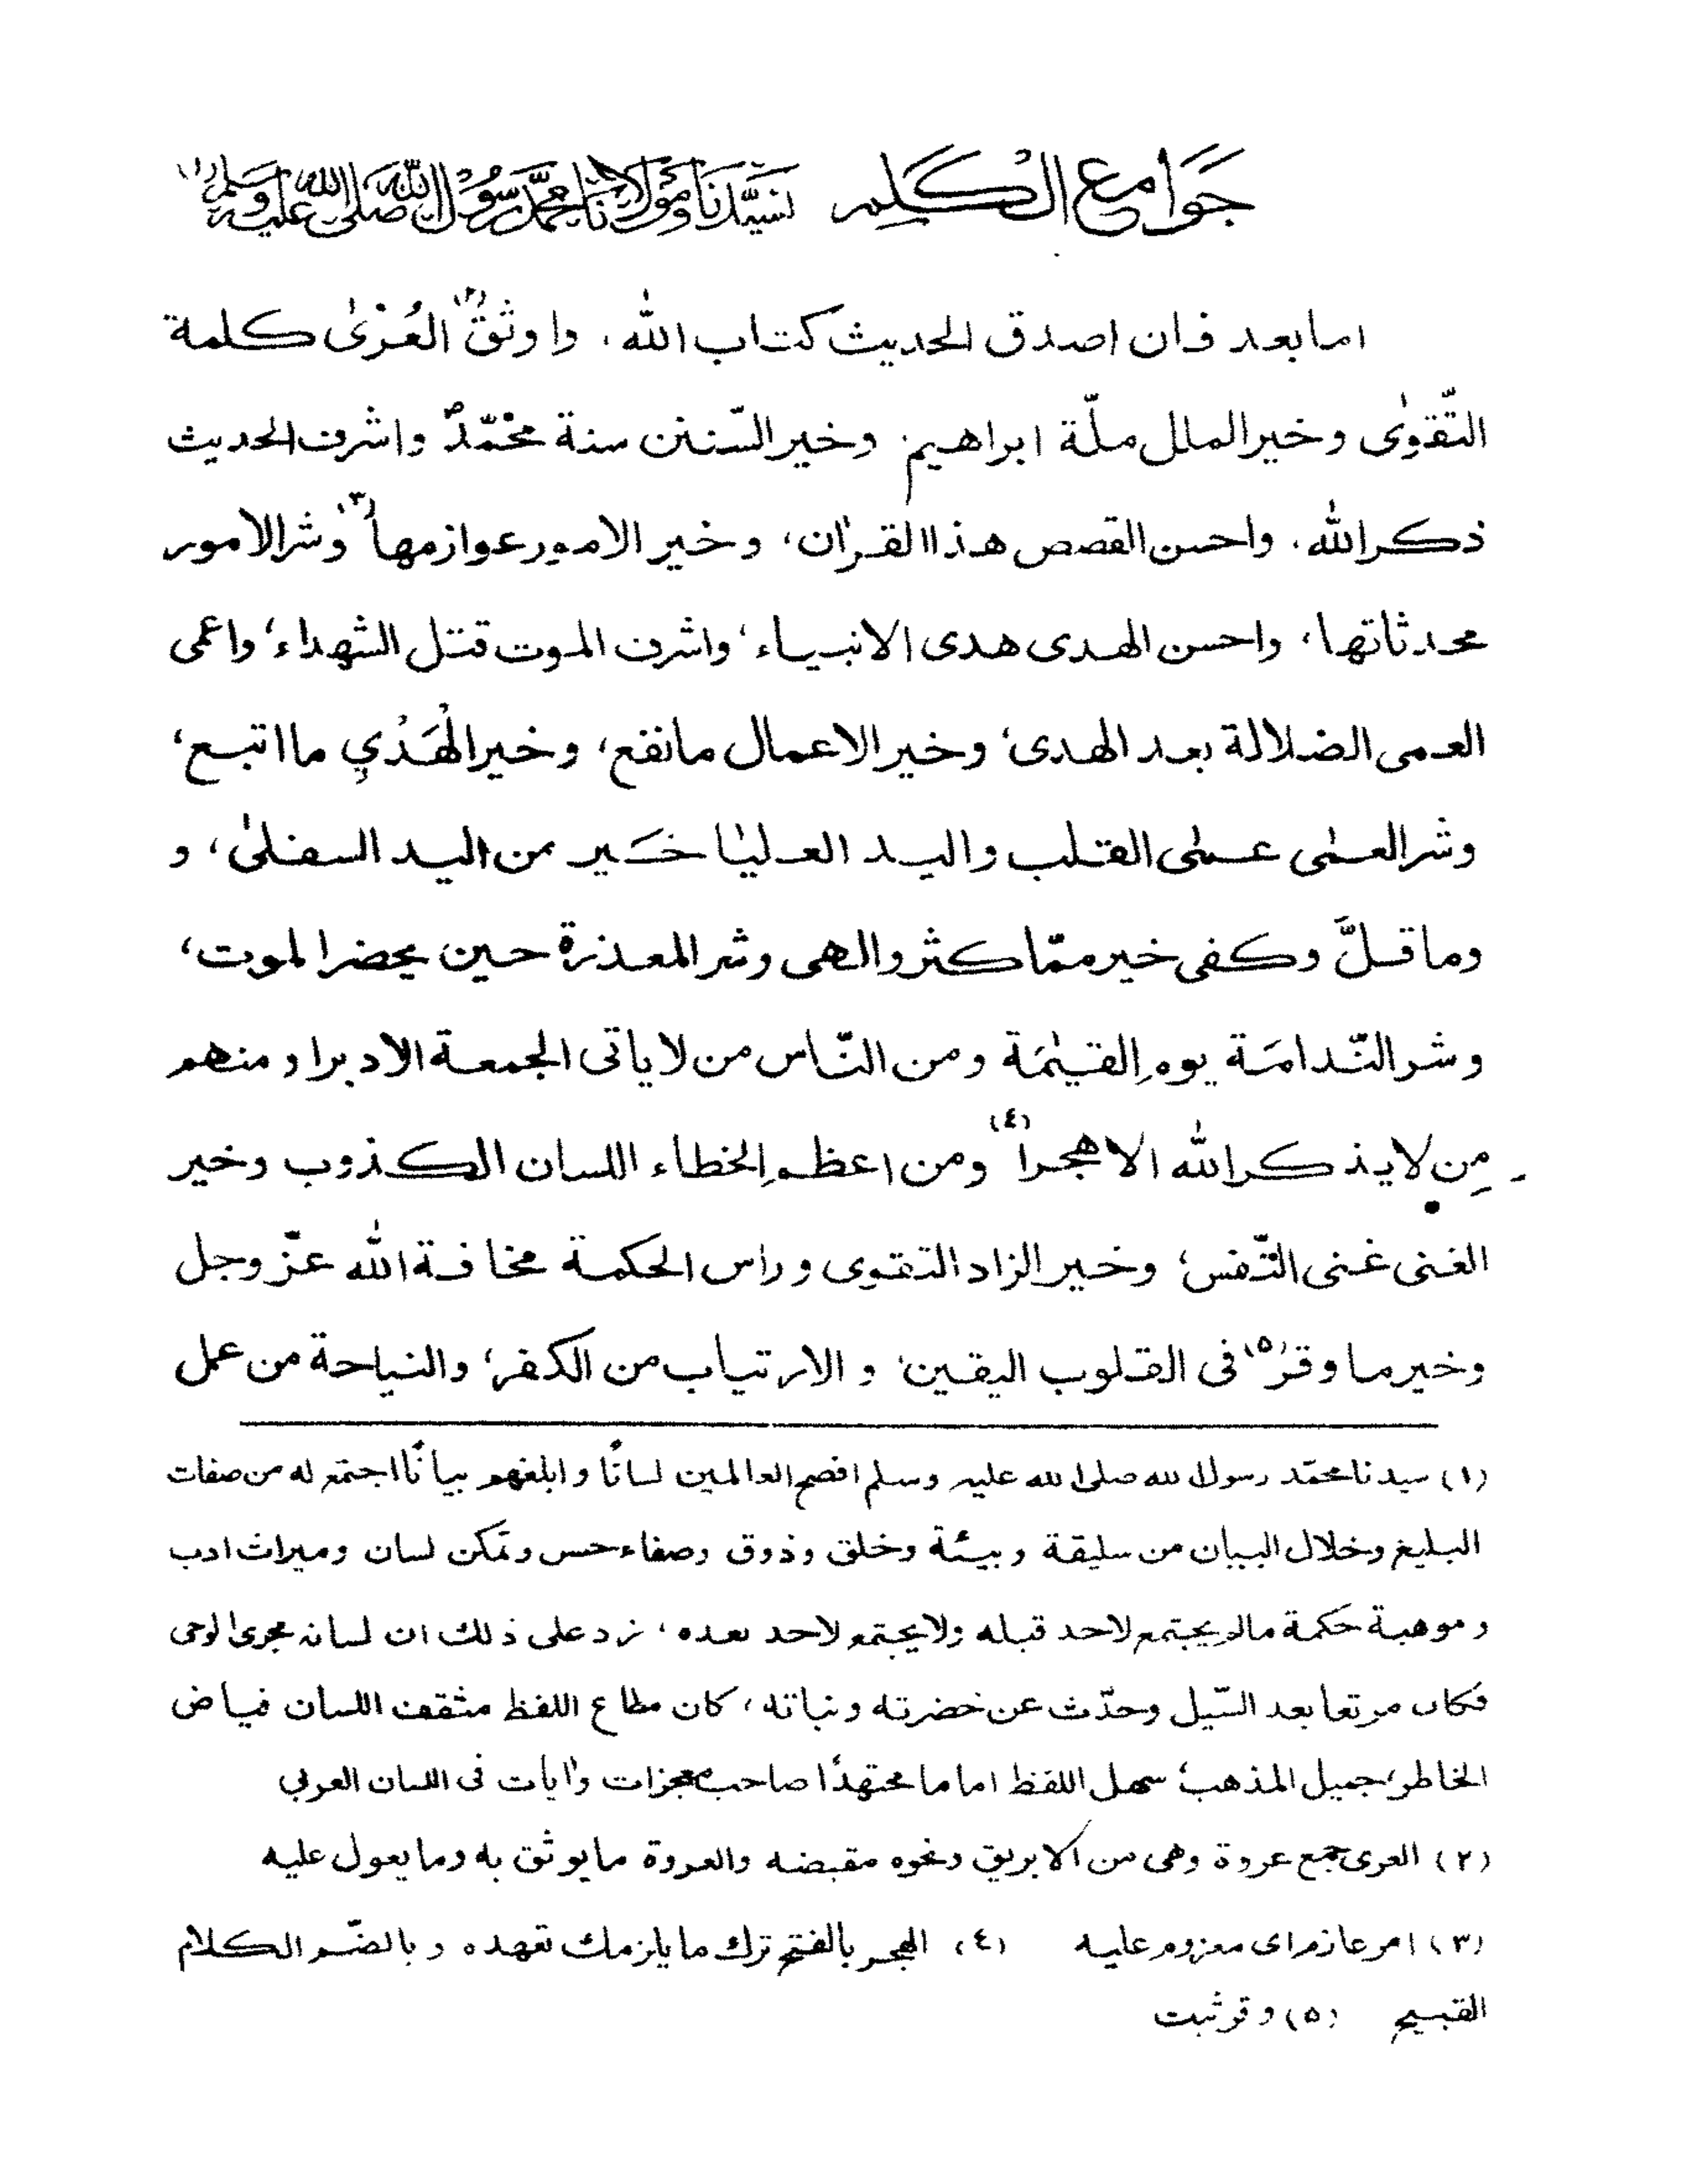 جَوامع الكَلِم لسَيّدنَا وَمَولَانَا محمّد رسُول الله صلى الله عليه وسلم (١)
اما بعد فان اصدق الحديث كتاب الله، واوثق (٢) العُرٰى كلمة
التّقوٰى وخير الملل ملّة ابراهيم. وخير السّنن سنة محمّدؐ واشرف الحديث
ذكر الله. واحسن القصص هذا القراٰن، وخير الامور عوازمها (٣) وشر الامور
محدثاتها، واحسن الهدى هدى الانبياء، واشرف الموت قتل الشهداء، واعمى
العمى الضلالة بعد الهدى، وخير الاعمال ما نفع، وخير الْهَدْيِ ما اتبع،
وشر العمٰى عمٰى القلب واليد العليٰا خَير من اليد السفلىٰ، و
وما قلَّ وكفى خير ممّا كثر والهى وشر المعذرة حين يحضر الموت،
وشر النّدامَة يوم القيٰمَة ومن النّاس من لا ياتى الجمعة الا دبرا ومنهم
مِن لا يذكر الله الا هجرا (٤) ومن اعظم الخطاء اللسان الكذوب وخير
الغنى غنى النّفس؛ وخير الزاد التقوى وراس الحكمة مخافة الله عزّ وجل
وخير ما وقر (٥) فى القلوب اليقين، و الارتياب من الكفر؛ والنياحة من عمل
(١) سيدنا محمّد رسول الله صلى الله عليه وسلم افصح العالمين لسانًا وابلغهم بيانًا اجتمع له من صفات
البليغ وخلال البيان من سليقة وبيئة وخلق وذوق وصفاء حس وتمكن لسان وميراث ادب
وموهبة حكمة مالم يجتمع لاحد قبله ولا يجتمع لاحد بعده، زد على ذلك ان لسانه مجرى الوحى
فكان مرتعا بعد السّيل وحدّث عن خضرته ونباته، كان مطاع اللفظ مثقف اللسان فياض
الخاطر، جميل المذهب؛ سهل اللفظ اماما مجتهدًا صاحب معجزات واٰيات فى اللسان العربى
(٢) العرى جمع عروة وهى من الابريق ونحوه مقبضه والعروة ما يوثق به وما يعول عليه
(٣) امر عازم اى معزوم عليه (٤) الهجر بالفتح ترك ما يلزمك تعهده وبالضّم الكلام
القبيح (٥) وقر ثبت